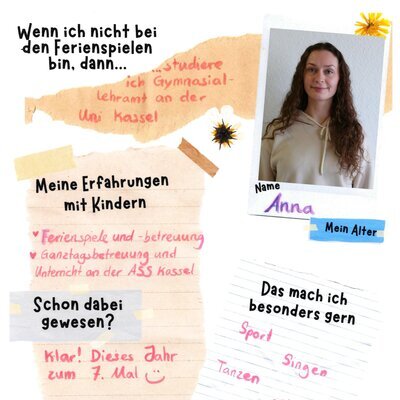 Wenn ich nicht bei
den Ferienspielen
bin, dann...
...studiere
ich Gymnasial-
lehramt an der
Uni Kassel
Name
Anna
Mein Alter
Meine Erfahrungen
mit Kindern
♥ Ferienspiele und -betreuung
♥ Ganztagsbetreuung und
Unterricht an der ASS Kassel
Schon dabei
gewesen?
Klar! Dieses Jahr
zum 7. Mal
Das mach ich
besonders gern
Sport
Singen
Tanzen